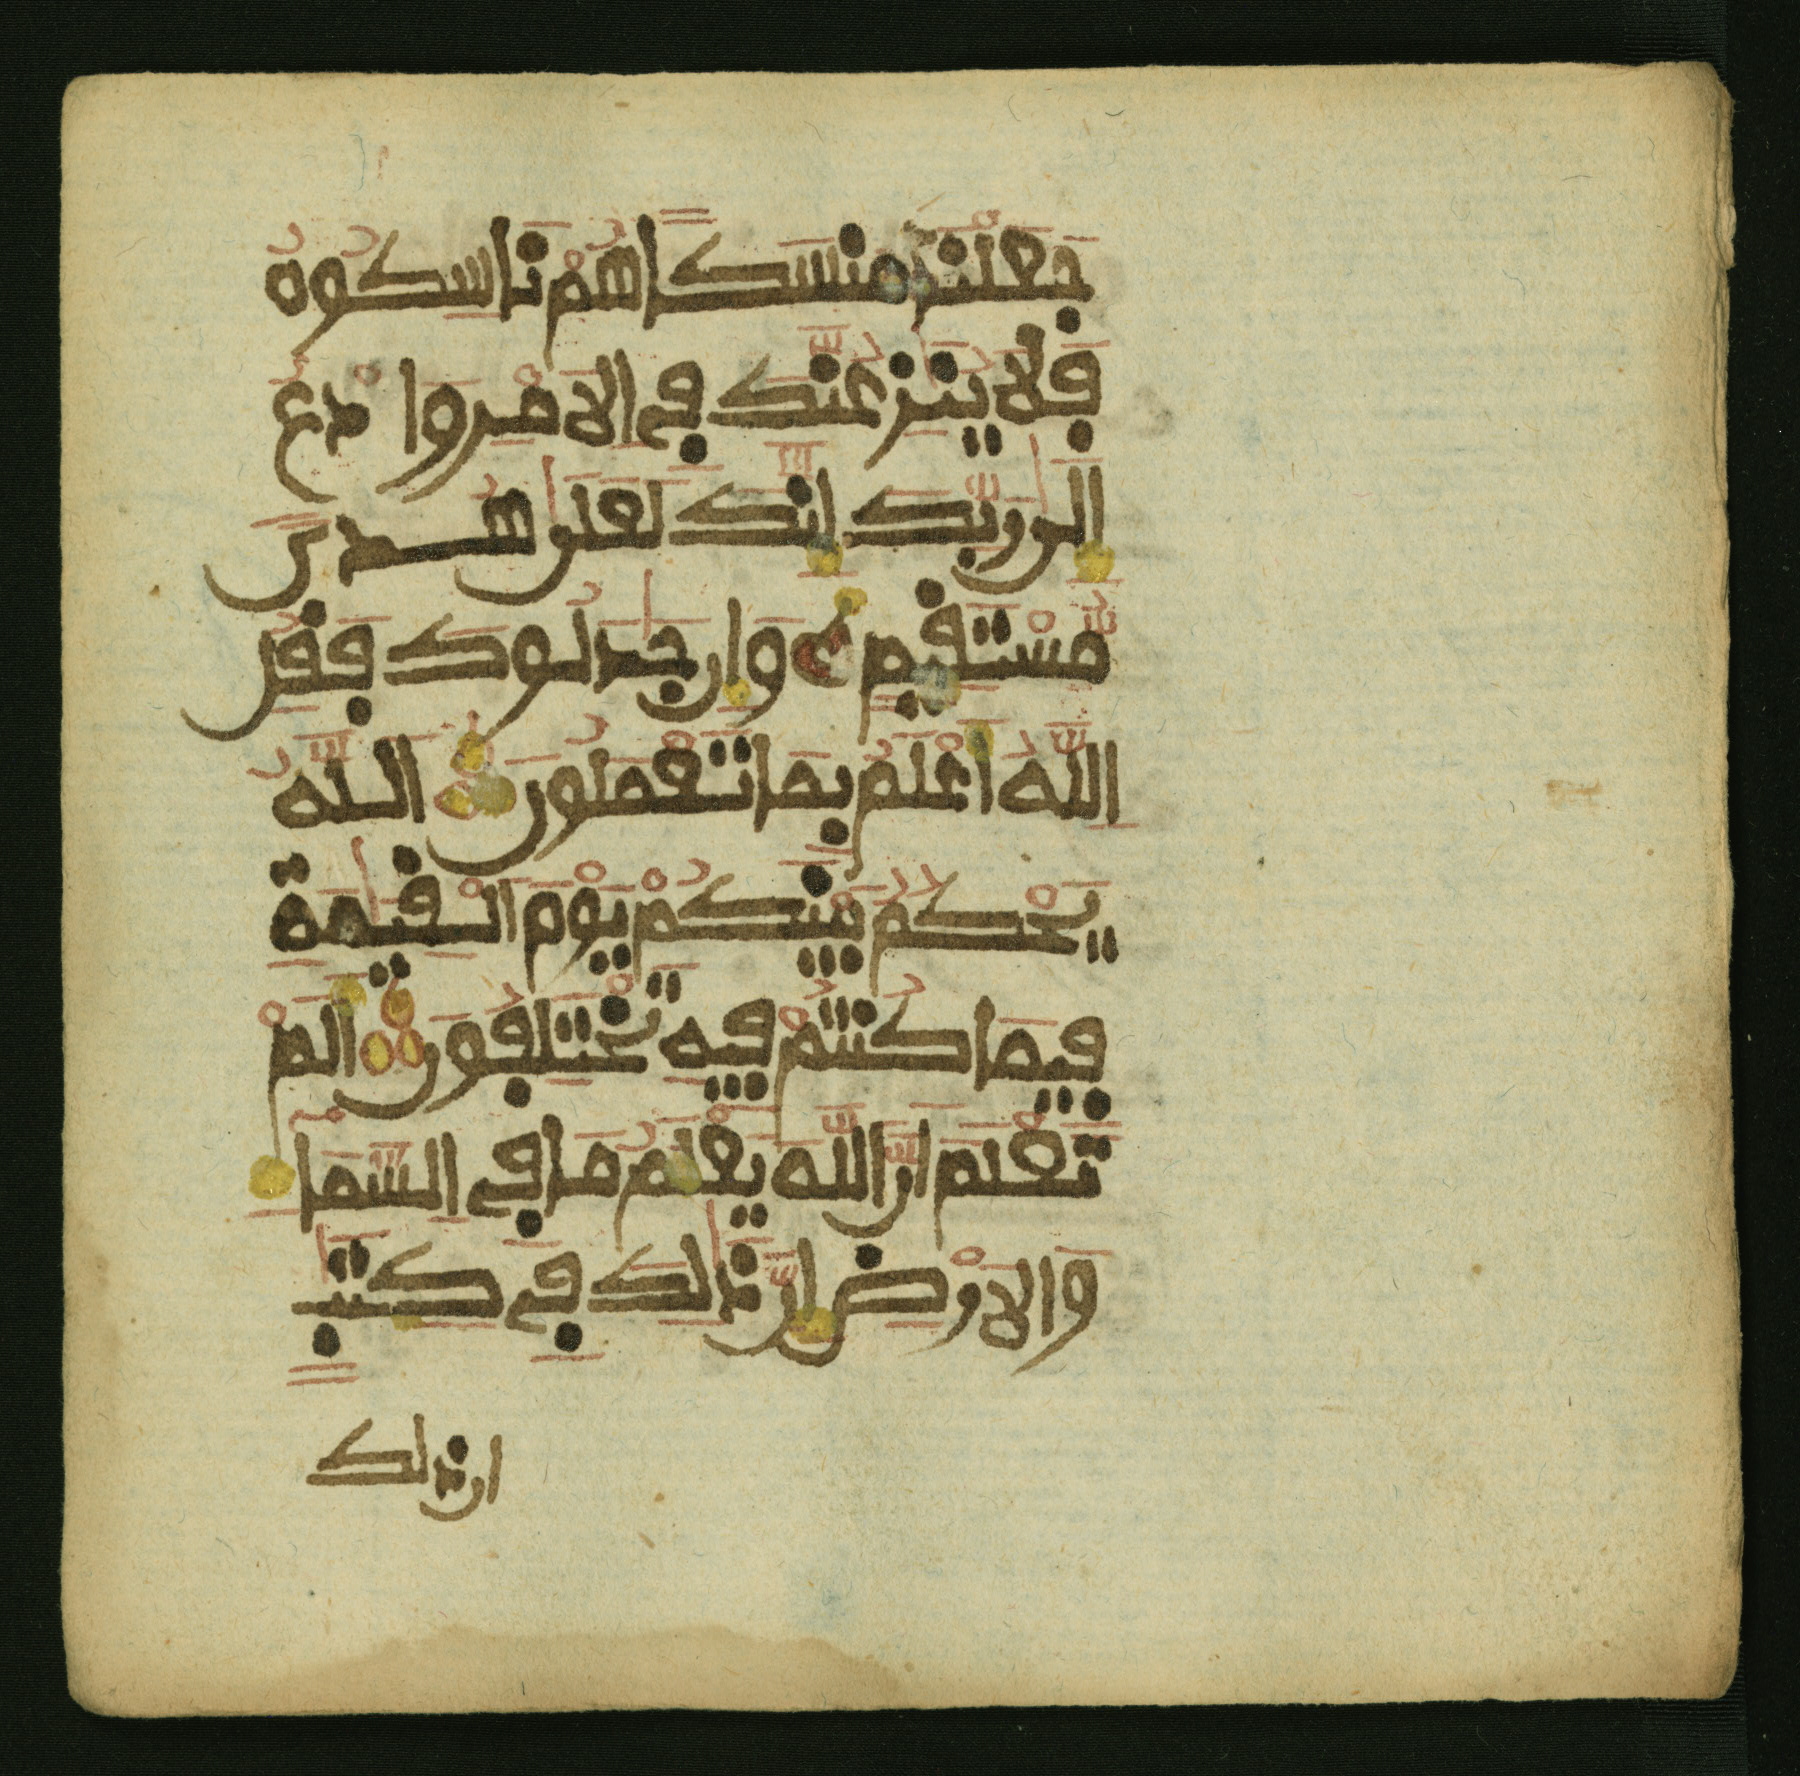 جَعَلْنَا مَنسَكاً هُمْ نَاسِكُوهُ
فَلَا يُنَٰزِعُنَّكَ فِي الَامْرِ وَادْعُ
إِلَىٰ رَبِّكَ إِنَّكَ لَعَلَىٰ هُدىً
مُّسْتَقِيمٍ وَإِن جَٰدَلُوكَ فَقُلِ
اللَّهُ أَعْلَمُ بِمَا تَعْمَلُونَ اللَّهُ
يَحْكُمُ بَيْنَكُمْ يَوْمَ الْقِيَٰمَةِ
فِيمَا كُنتُمْ فِيهِ تَخْتَلِفُونَ أَلَمْ
تَعْلَمَ انَّ اللَّهَ يَعْلَمُ مَا فِي السَّمَاءِ
وَالَارْضِ إِنَّ ذَٰلِكَ فِي كِتَٰبٍ
ان ذلك